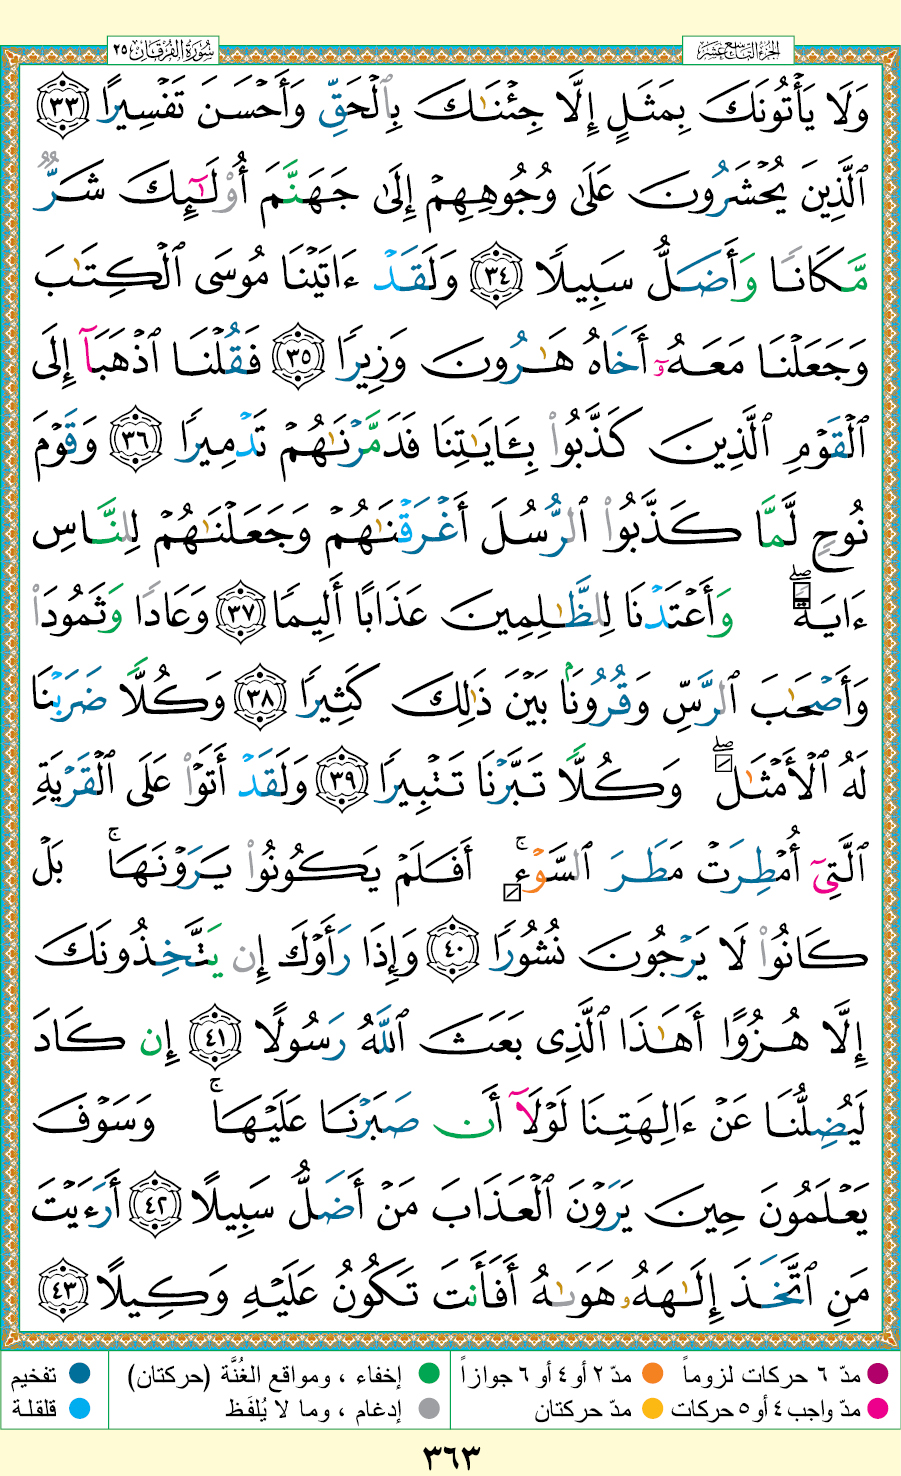 سُورَةُ الفُرْقَان ٢٥
الجُزءُ التَّاسِعَ عَشَرَ
وَلَا يَأْتُونَكَ بِمَثَلٍ إِلَّا جِئْنَٰكَ بِٱلْحَقِّ وَأَحْسَنَ تَفْسِيرًا ٣٣
ٱلَّذِينَ يُحْشَرُونَ عَلَىٰ وُجُوهِهِمْ إِلَىٰ جَهَنَّمَ أُو۟لَٰٓئِكَ شَرٌّ
مَّكَانًا وَأَضَلُّ سَبِيلًا ٣٤ وَلَقَدْ ءَاتَيْنَا مُوسَى ٱلْكِتَٰبَ
وَجَعَلْنَا مَعَهُۥٓ أَخَاهُ هَٰرُونَ وَزِيرًا ٣٥ فَقُلْنَا ٱذْهَبَآ إِلَى
ٱلْقَوْمِ ٱلَّذِينَ كَذَّبُوا۟ بِـَٔايَٰتِنَا فَدَمَّرْنَٰهُمْ تَدْمِيرًا ٣٦ وَقَوْمَ
نُوحٍ لَّمَّا كَذَّبُوا۟ ٱلرُّسُلَ أَغْرَقْنَٰهُمْ وَجَعَلْنَٰهُمْ لِلنَّاسِ
ءَايَةً ۖ وَأَعْتَدْنَا لِلظَّٰلِمِينَ عَذَابًا أَلِيمًا ٣٧ وَعَادًا وَثَمُودَا۟
وَأَصْحَٰبَ ٱلرَّسِّ وَقُرُونًۢا بَيْنَ ذَٰلِكَ كَثِيرًا ٣٨ وَكُلًّا ضَرَبْنَا
لَهُ ٱلْأَمْثَٰلَ ۖ وَكُلًّا تَبَّرْنَا تَتْبِيرًا ٣٩ وَلَقَدْ أَتَوْا۟ عَلَى ٱلْقَرْيَةِ
ٱلَّتِىٓ أُمْطِرَتْ مَطَرَ ٱلسَّوْءِ ۚ أَفَلَمْ يَكُونُوا۟ يَرَوْنَهَا ۚ بَلْ
كَانُوا۟ لَا يَرْجُونَ نُشُورًا ٤٠ وَإِذَا رَأَوْكَ إِن يَتَّخِذُونَكَ
إِلَّا هُزُوًا أَهَٰذَا ٱلَّذِى بَعَثَ ٱللَّهُ رَسُولًا ٤١ إِن كَادَ
لَيُضِلُّنَا عَنْ ءَالِهَتِنَا لَوْلَآ أَن صَبَرْنَا عَلَيْهَا ۚ وَسَوْفَ
يَعْلَمُونَ حِينَ يَرَوْنَ ٱلْعَذَابَ مَنْ أَضَلُّ سَبِيلًا ٤٢ أَرَءَيْتَ
مَنِ ٱتَّخَذَ إِلَٰهَهُۥ هَوَىٰهُ أَفَأَنتَ تَكُونُ عَلَيْهِ وَكِيلًا ٤٣
مدّ ٦ حركات لزوماً مدّ ٢ أو ٤ أو ٦ جوازاً إخفاء ، ومواقع الغُنَّة (حركتان) تفخيم
مدّ واجب ٤ أو ٥ حركات مدّ حركتان إدغام ، وما لا يُلفَظ قلقلة
٣٦٣